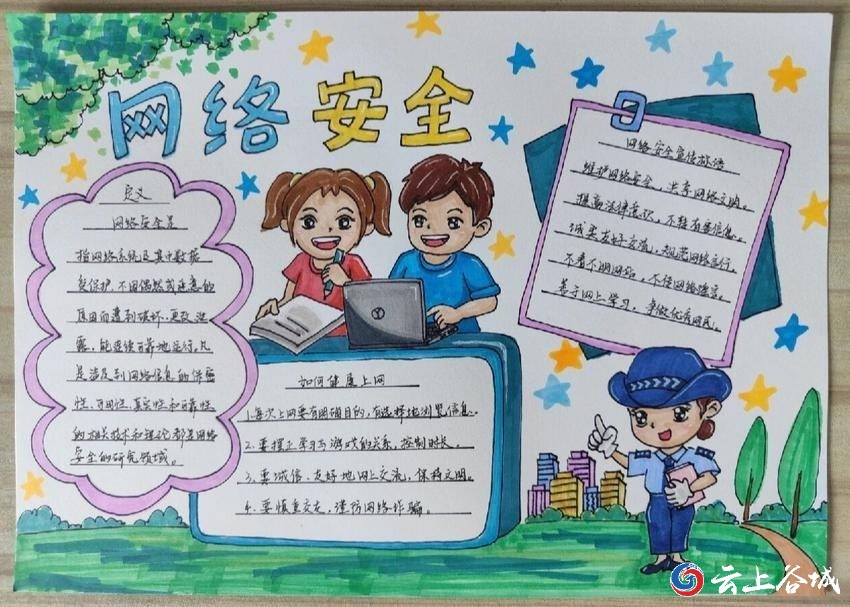 网络安全
定义
网络安全是
指网络系统及其中数据
受保护，不因偶然或恶意的
原因而遭到破坏、更改、泄
露，能连续可靠地运行，凡
是涉及到网络信息的保密
性、可用性、真实性和可靠性
的相关技术和理论都是网络
安全的研究领域。
如何健康上网
1.每次上网要有明确目的，有选择地浏览信息。
2.要摆正学习与游戏的关系，控制时长。
3.要诚信、友好地网上交流，保持文明。
4.要慎重交友，谨防网络诈骗。
网络安全宣传标语
维护网络安全，共享网络文明。
提高法律意识，不轻有害信息。
诚实友好交流，规范网络言行。
不看不明网站，不传网络谣言。
善于网上学习，争做优秀网民。
云上谷城